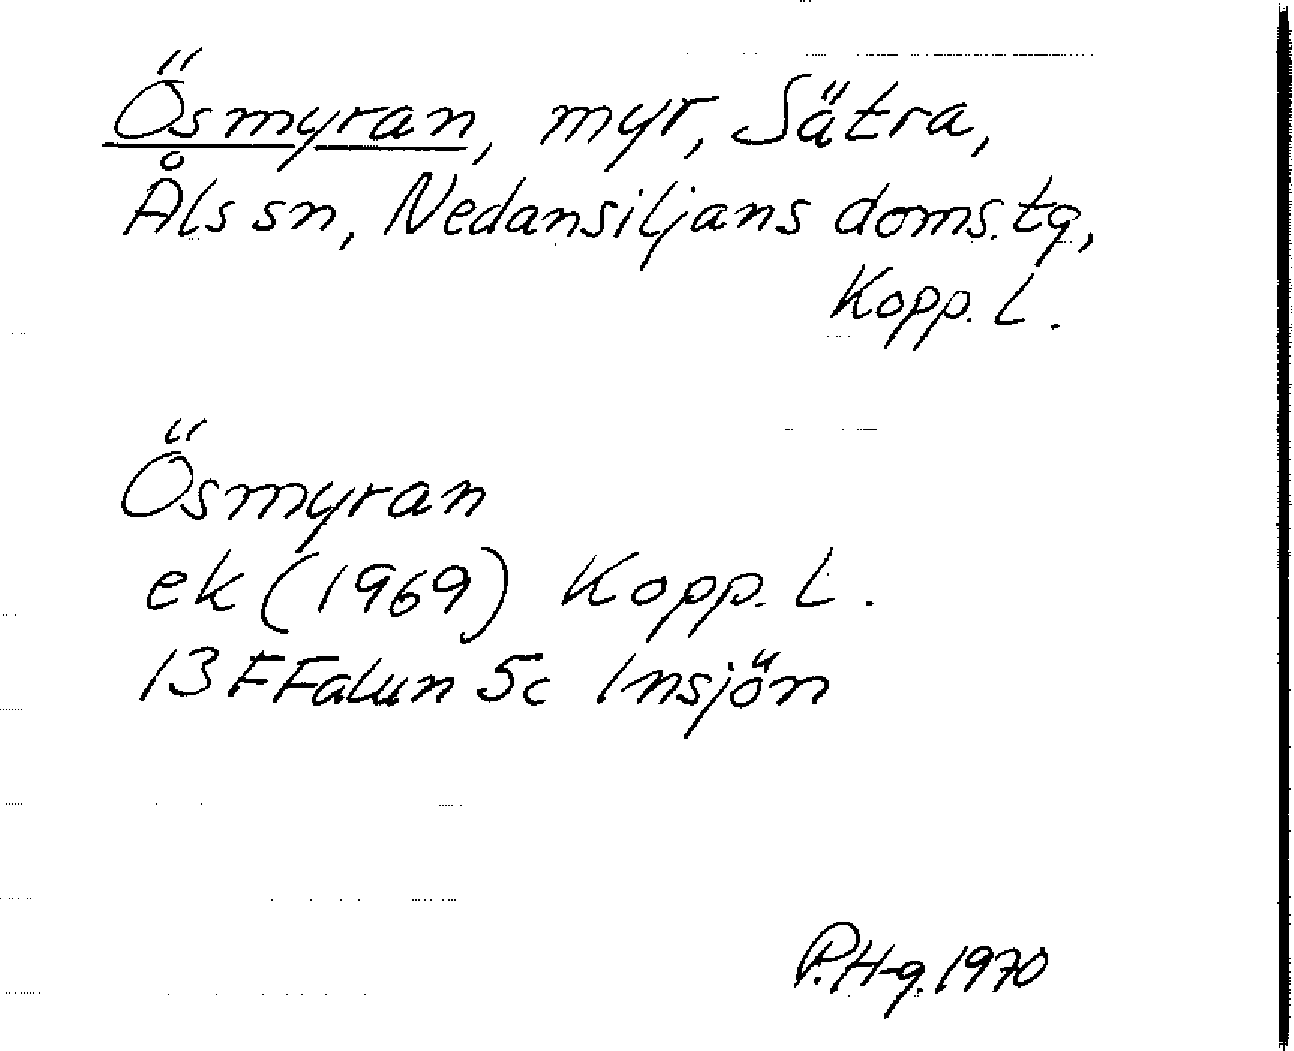 Ösmyran, myr, Sätra,
Åls sn, Nedansiljans doms.tg,
Kopp. L.
Ösmyran
ek (1969) Kopp. L.
13 F Falun 5c Insjön
P.H-g. 1970